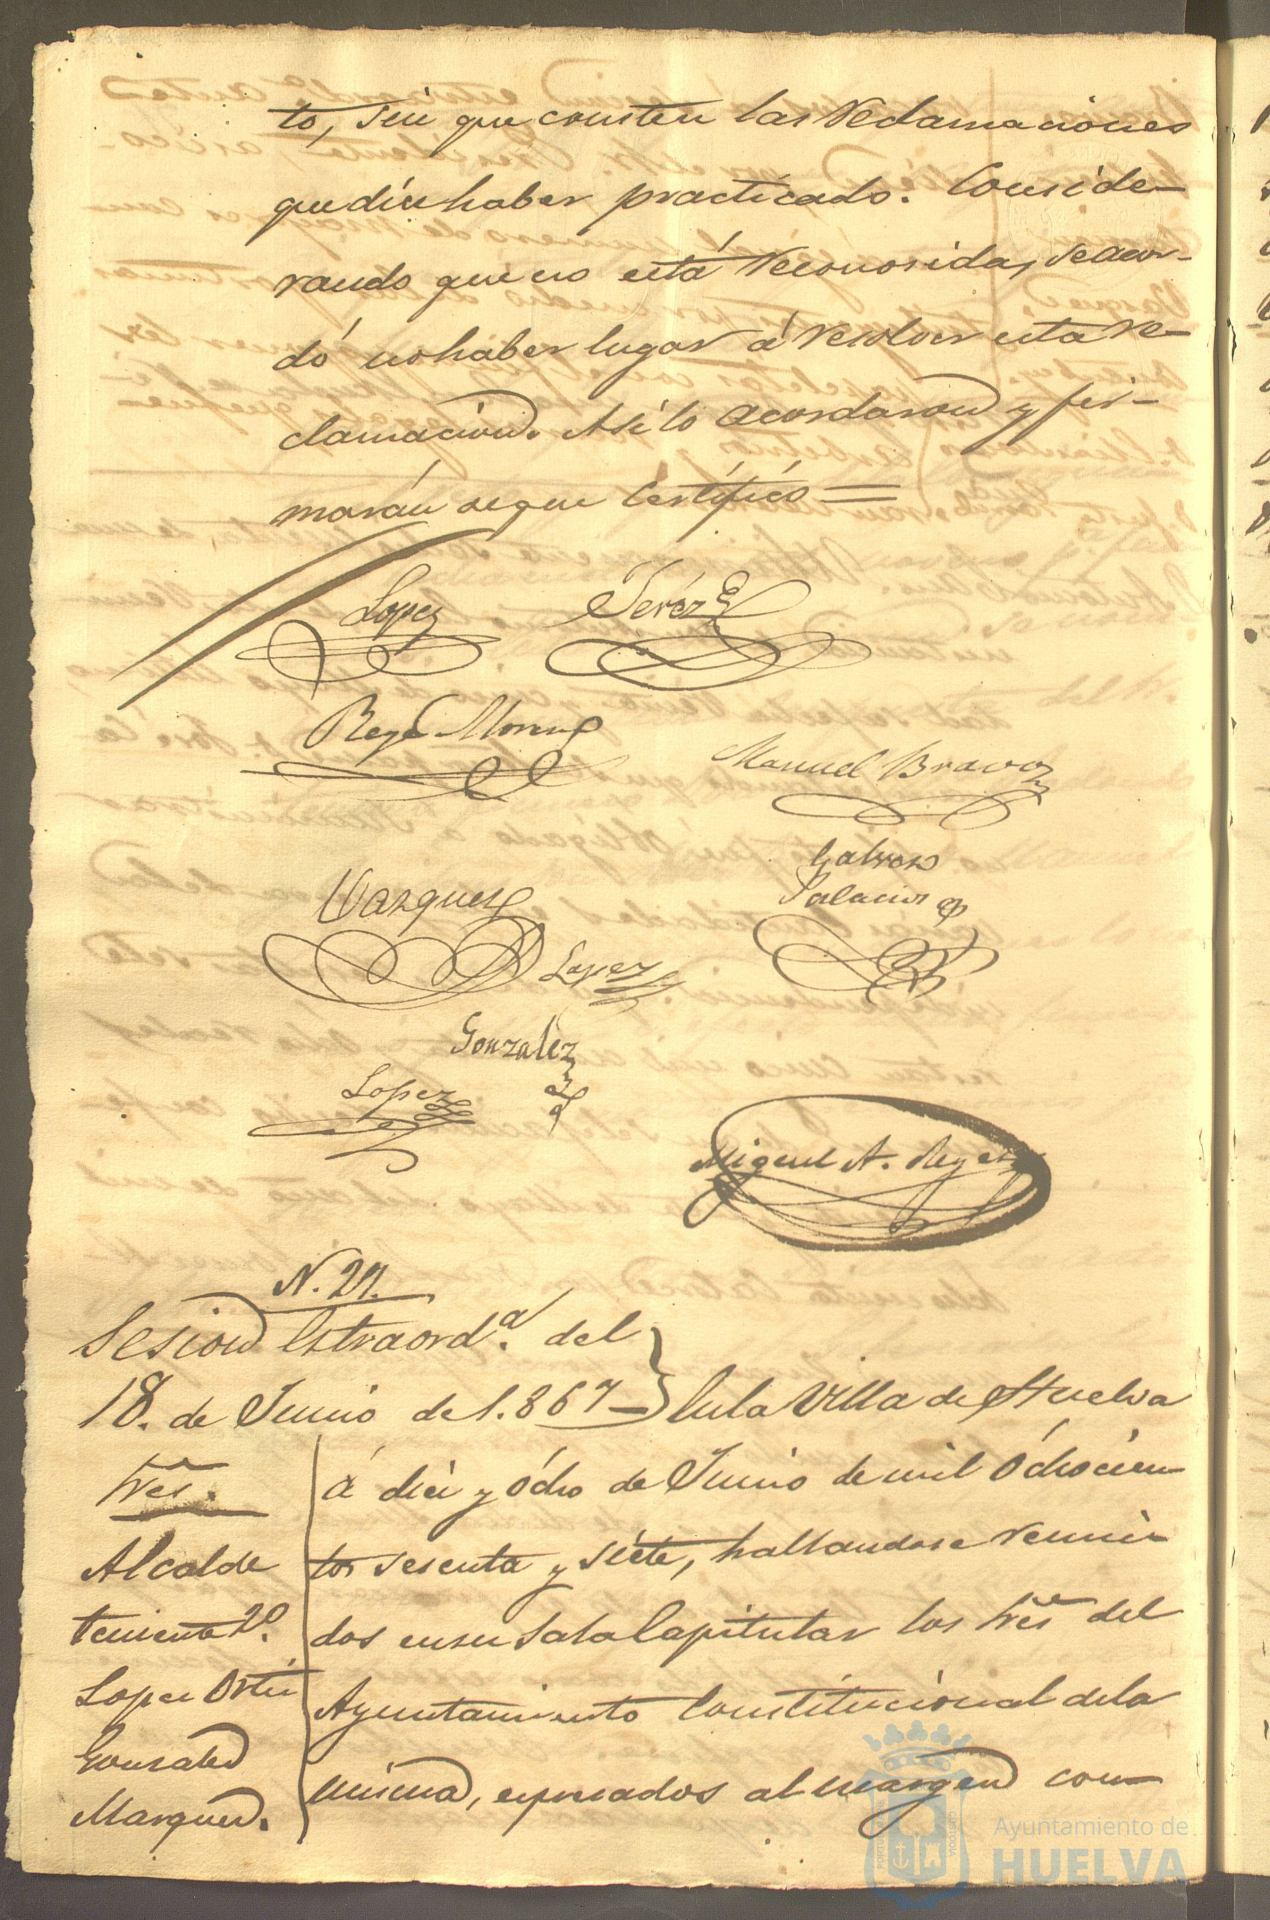 to, sin que consten las reclamaciones
que dice haber practicado. Conside-
rando que no está reconocida, se acor-
dó no haber lugar á resolver esta re-
clamacion. Asi lo acordaron y fir-
marán de que Certifico =
Lopez
Jeréz
Reyes Moreno
Manuel Bravo
Vazquez
Galvoso
Palacios
Lopez
Gonzalez
Lopez
Miguel A. Reyes
N. 27.
Sesion Estraord.ª del
18. de Junio de 1.867 = En la Villa de Huelva
Sres.
Alcalde
Teniente 2º.
Lopez Ortiz
Gonzalez
Marquez.
á diez y ocho de Junio de mil ochocien-
tos sesenta y siete, hallandose reuni-
dos en su Sala Capitular los Sres. del
Ayuntamiento Constitucional de la
misma, espresados al margen con-
Ayuntamiento de
HUELVA